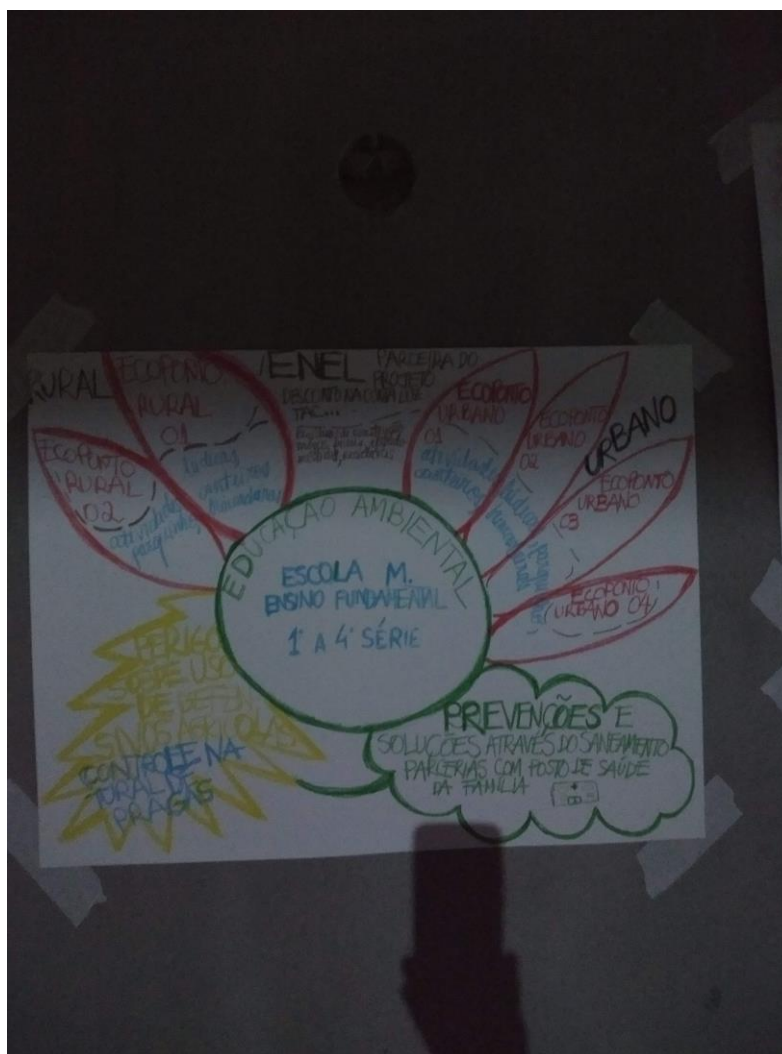 RURAL
ECOPONTO
RURAL
01
ECOPONTO
RURAL
02
atividades lúdicas
canteiros
ENEL
PARCEIRA DO
PROJETO
DESCONTO NA CONTA DE LUZ
ECOPONTO
URBANO
01
atividades lúdicas
canteiros
ECOPONTO
URBANO
02
URBANO
ECOPONTO
URBANO
03
ECOPONTO
URBANO 04
EDUCAÇÃO AMBIENTAL
ESCOLA M.
ENSINO FUNDAMENTAL
1ª A 4ª SÉRIE
PERIGO
SOBRE USO
DE DEFEN
SIVOS AGRICOLAS
CONTROLE NA
TURAL DE
PRAGAS
PREVENÇÕES E
SOLUÇÕES ATRAVÉS DO SANEAMENTO
PARCERIAS COM POSTO DE SAÚDE
DA FAMÍLIA